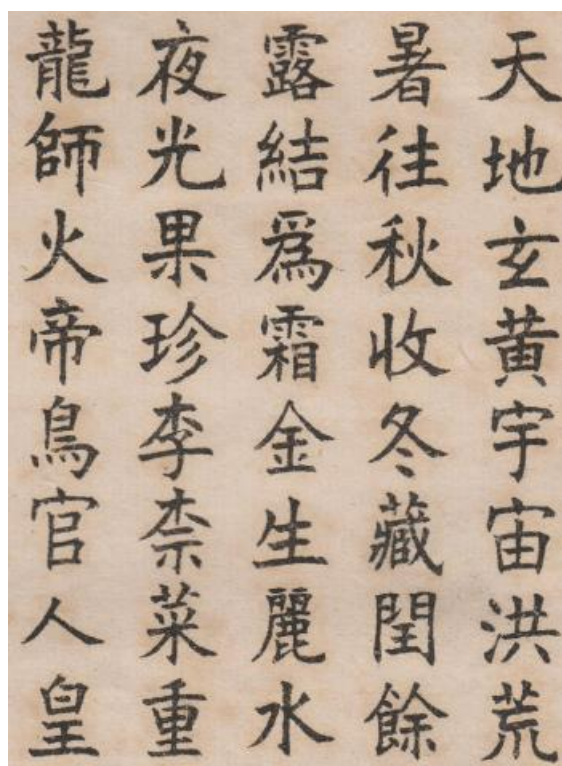 天地玄黄宇宙洪荒
暑往秋收冬藏閏餘
露結爲霜金生麗水
夜光果珍李柰菜重
龍師火帝鳥官人皇